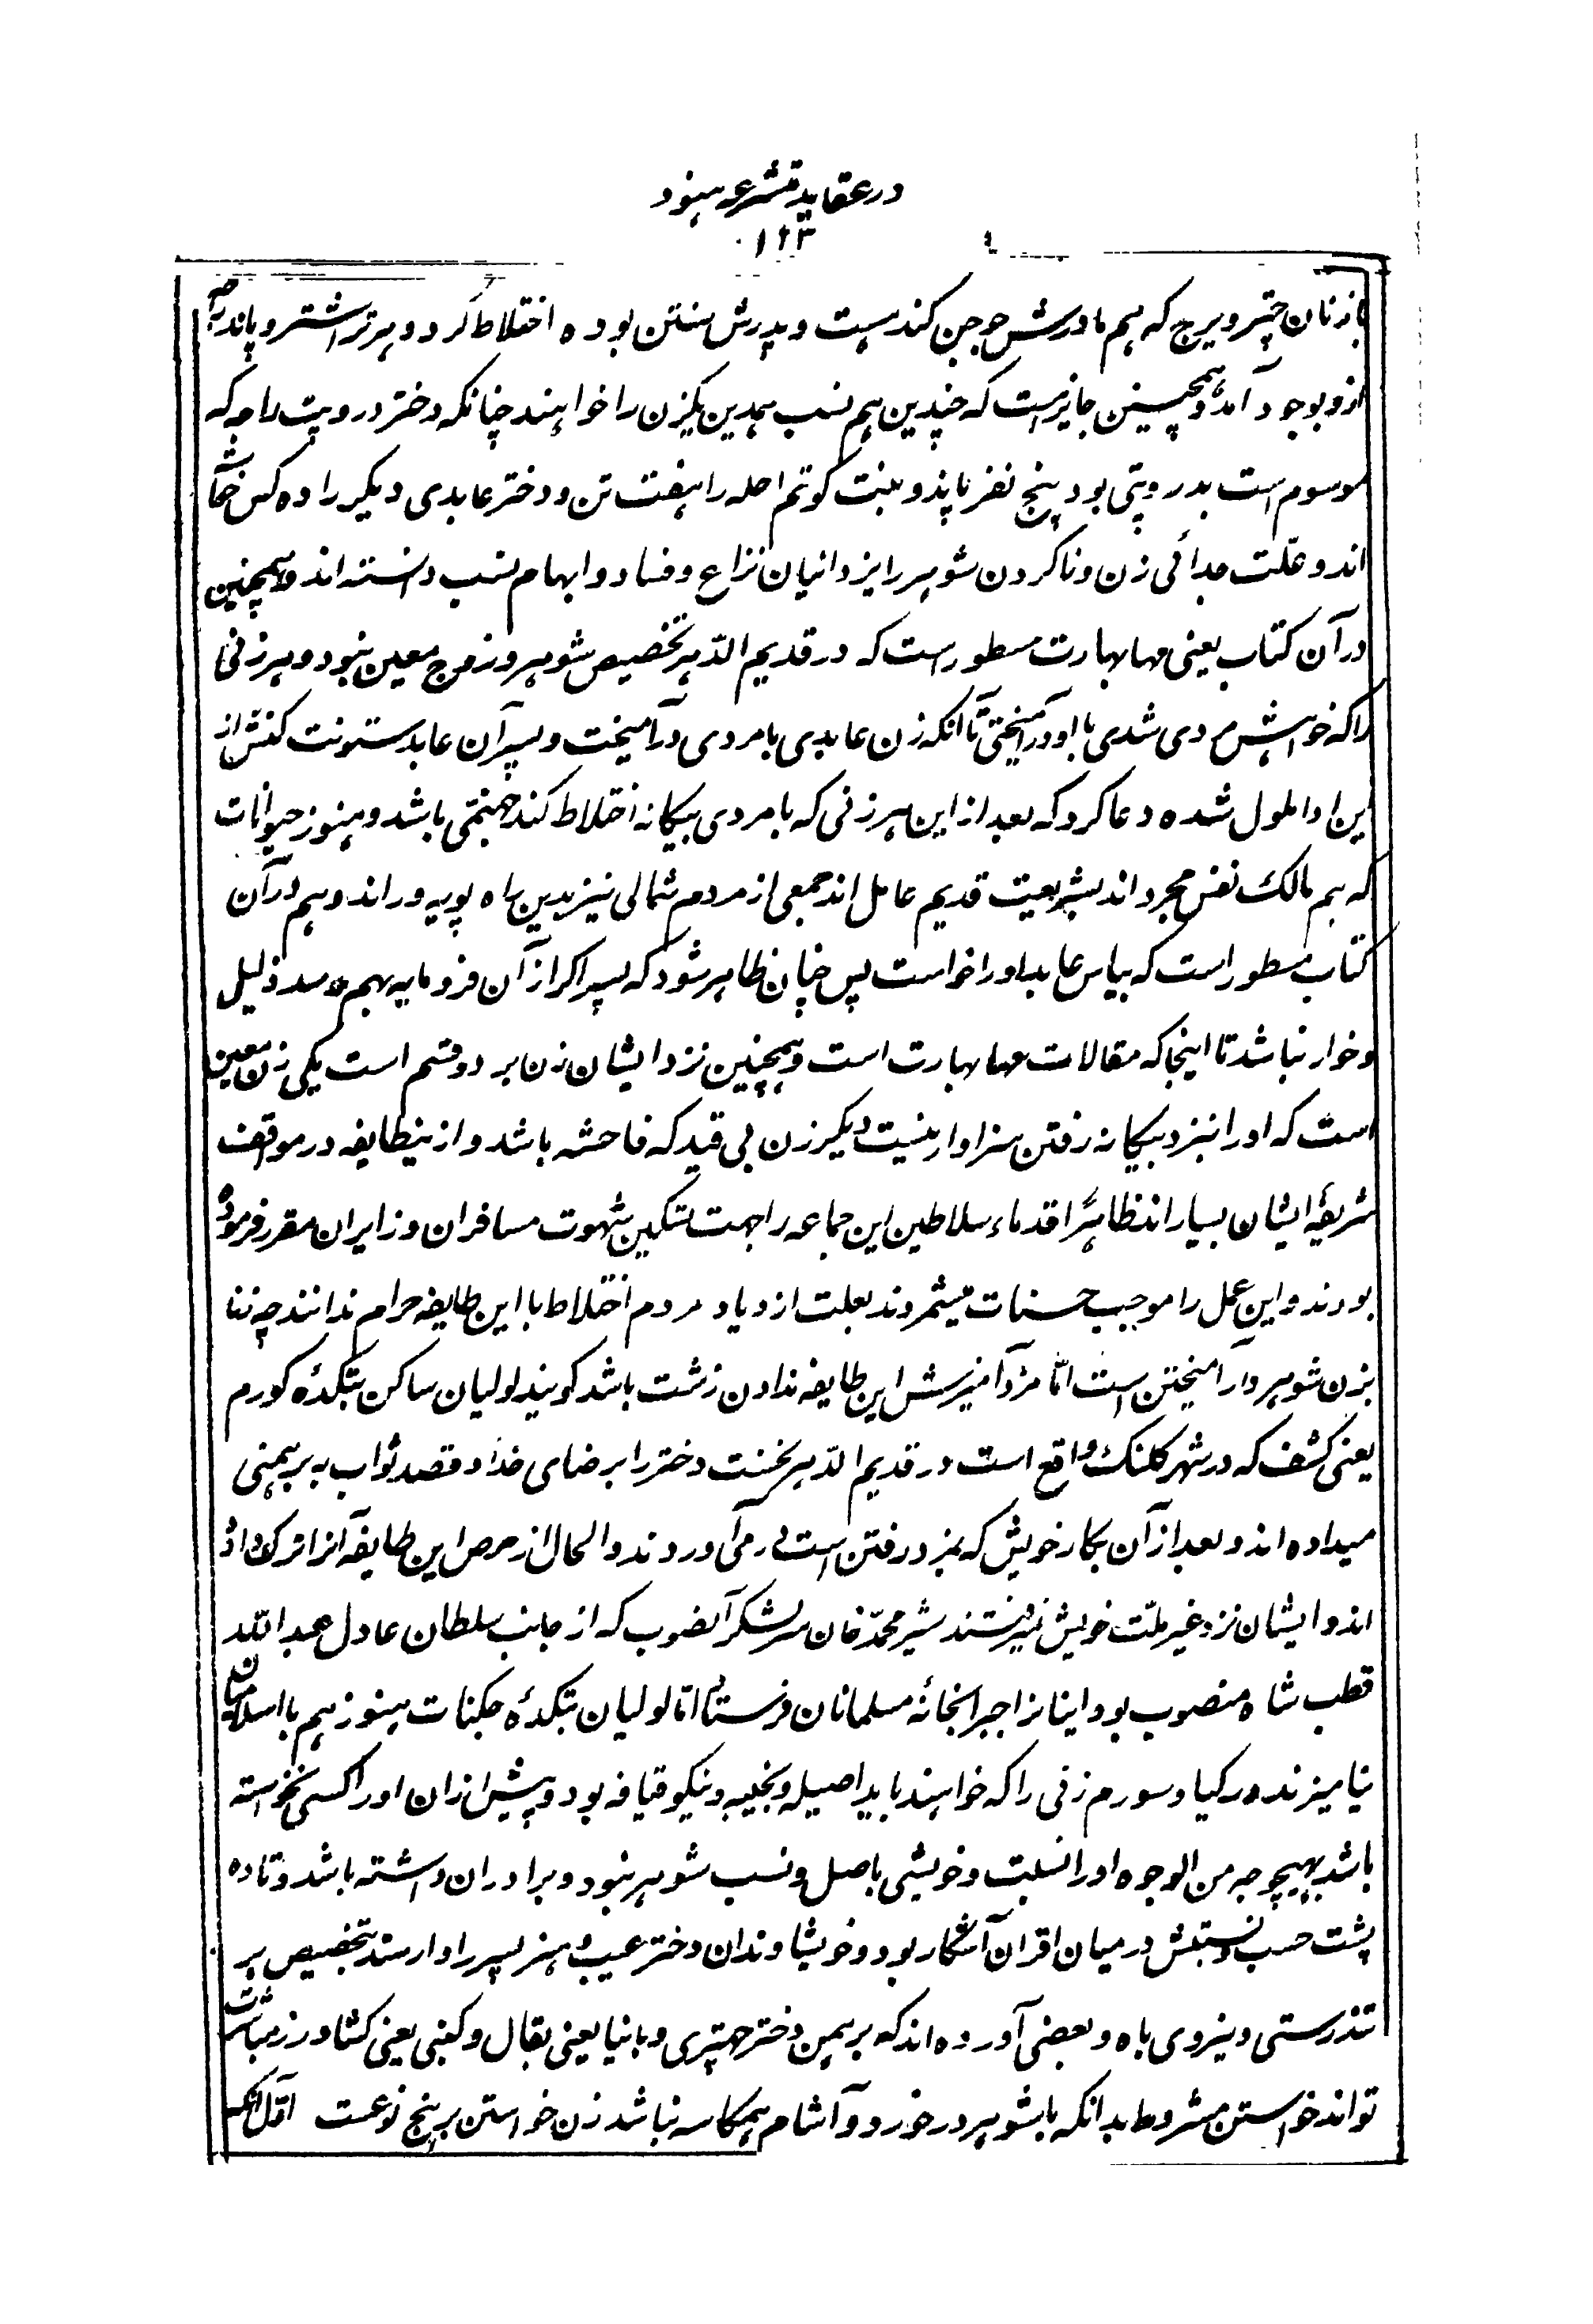 در عقاید متشرعه هنود
۱۲۳
بازنان چتر ویرج که هم مادرش جوجن کندهست و پدرش سنتن بوده اختلاط کرد و دهرتراشتر و پاند
ازو بوجود آمد و همچنین جایز است که چندین هم نسب همدین یکزن را خواهند چنانکه دختر دروپت راجه که
موسوم است بدروپتی بود پنج نفر پاندو بنت کوتم اهله را هفت تن و دختر عابدی دیگر را ده کس
اند و علت جدائی زن و ناکردن شوهر را یزدانیان نزاع و فساد و ابهام نسب دانسته اند و همچنین
در آن کتاب یعنی مها بهارت مسطور است که در قدیم الدهر تخصیص شوهر و زوج معین نبود و هر زنی
را که خواهش مردی شدی با او درآمیختی تا آنکه زن عابدی با مردی درآمیخت و پسر آن عابد ستونت کنش از
این ادا ملول شده دعا کرد که بعد از این هر زنی که با مردی بیگانه اختلاط کند جهنمی باشد و هنوز حیوانات
که هم مالک نفس مجرد اند بشریعت قدیم عامل اند جمعی از مردم شمالی نیز بدین راه پویه ور اند و هم در آن
کتاب مسطور است که بیاس عابد اورا خواست پس چنان ظاهر شود که پسر اگر از آن فرومایه بهم رسد ذلیل
و خوار نباشد تا اینجا که مقالات مها بهارت است و همچنین نزد ایشان زن بر دو قسم است یکی زن معین
است که اورا بنزد بیگانه رفتن سزاوار نیست دیگر زن بی قید که فاحشه باشد و از ینطایفه در مواقف
شریفه ایشان بسیار اند ظاهرا قدماء سلاطین این جماعه را جهت تسکین شهوت مسافران و زایران مقرر فرموده
بودند و این عمل را موجب حسنات میشمردند بعلت ازدیاد مردم اختلاط با این طایفه حرام ندانند چه زنا
بزن شوهردار آمیختن است اما مزد آمیزش این طایفه ندادن زشت باشد گویند لولیان ساکن بتکده کورم
یعنی کشف که در شهر کلنک واقع است در قدیم الدهر نخست دختر را برضای خدا و قصد ثواب به برهمنی
میداده اند و بعد از آن بکار خویش که بمزد رفتن است در می آوردند و الحال از حرص این طایفه آنرا ترک داده
اند و ایشان نزد غیر ملت خویش نمیفرستند شیر محمد خان سرلشکر آنصوب که از جانب سلطان عادل عبد الله
قطب شاه منصوب بود اینانرا جبرا بخانه مسلمانان فرستادی اما لولیان بتکده جکنات هنوز هم با اسلامیان
نیامیزند در کیا و سورم زنی را که خواهند باید اصیله و نجیبه و نیکو قیافه بود و پیش ازان اورا کسی نخواسته
باشد بهیچوجه من الوجوه اورا نسبت و خویشی باصل و نسب شوهر نبود و برادران داشته باشد و تا ده
پشت حسب و نسبتش در میان اقران آشکار بود و خویشاوندان دختر عیب و هنر پسر را وارسند بتخصیص بر
تندرستی و نیروی باه و بعضی آورده اند که برهمن دختر چهتری و بانیا یعنی بقال و کنبی یعنی کشاورز
تواند خواستن مشروط بدانکه با شوهر در خورد و آشام همکاسه نباشد زن خواستن بر پنج نوعست اول آنکه